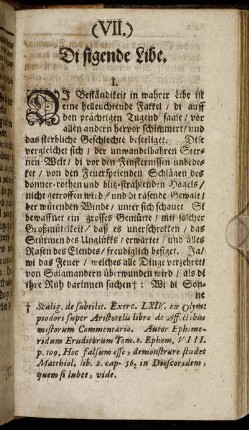 (VII.)
Di sigende Libe.
I.
DI Beständikeit in wahrer Libe ist
eine helleuchtende Fakkel / di auff
den prächtigen Tugend saale / vor
allen andern hervor schimmert / und
das sterbliche Geschlechte beseeliget. Dise
vergleichet sich / der unwandelbahren Ster-
nen Welt / di vor den Finsternissen unbedek-
ket / von den Feuerspeienden Schlägen des
donner-rothen und blitz-strahlenden Hagels /
nicht getroffen wird / und di rasende Gewalt /
der wütenden Winde / unter sich schauet. Si
bewaffnet ein grosses Gemütte / mit solcher
Großmüttikeit / daß es unerschrokken / das
Stürmen des Unglükks / erwartet / und alles
Rasen des Elendes / freudiglich besiget. Ja /
wi das Feuer / welches alle Dinge verzehret /
von Salamandern überwunden wird / als di
ihre Ruh darinnen suchen † : Wi di Son-
ne
† Scalig. de subtilit. Exerc. LXIV. ex Olym-
piodori super Aristotelis libro de Affectibus
mistorum Commentario. Autor Ephime-
ridum Eruditorum Tom. 2. Ephem. VIII.
p. 109. Hoc falsum esse, demonstrare studet
Matthiol. lib. 2. cap. 56. in Dioscoridem,
quem si lubet, vide.